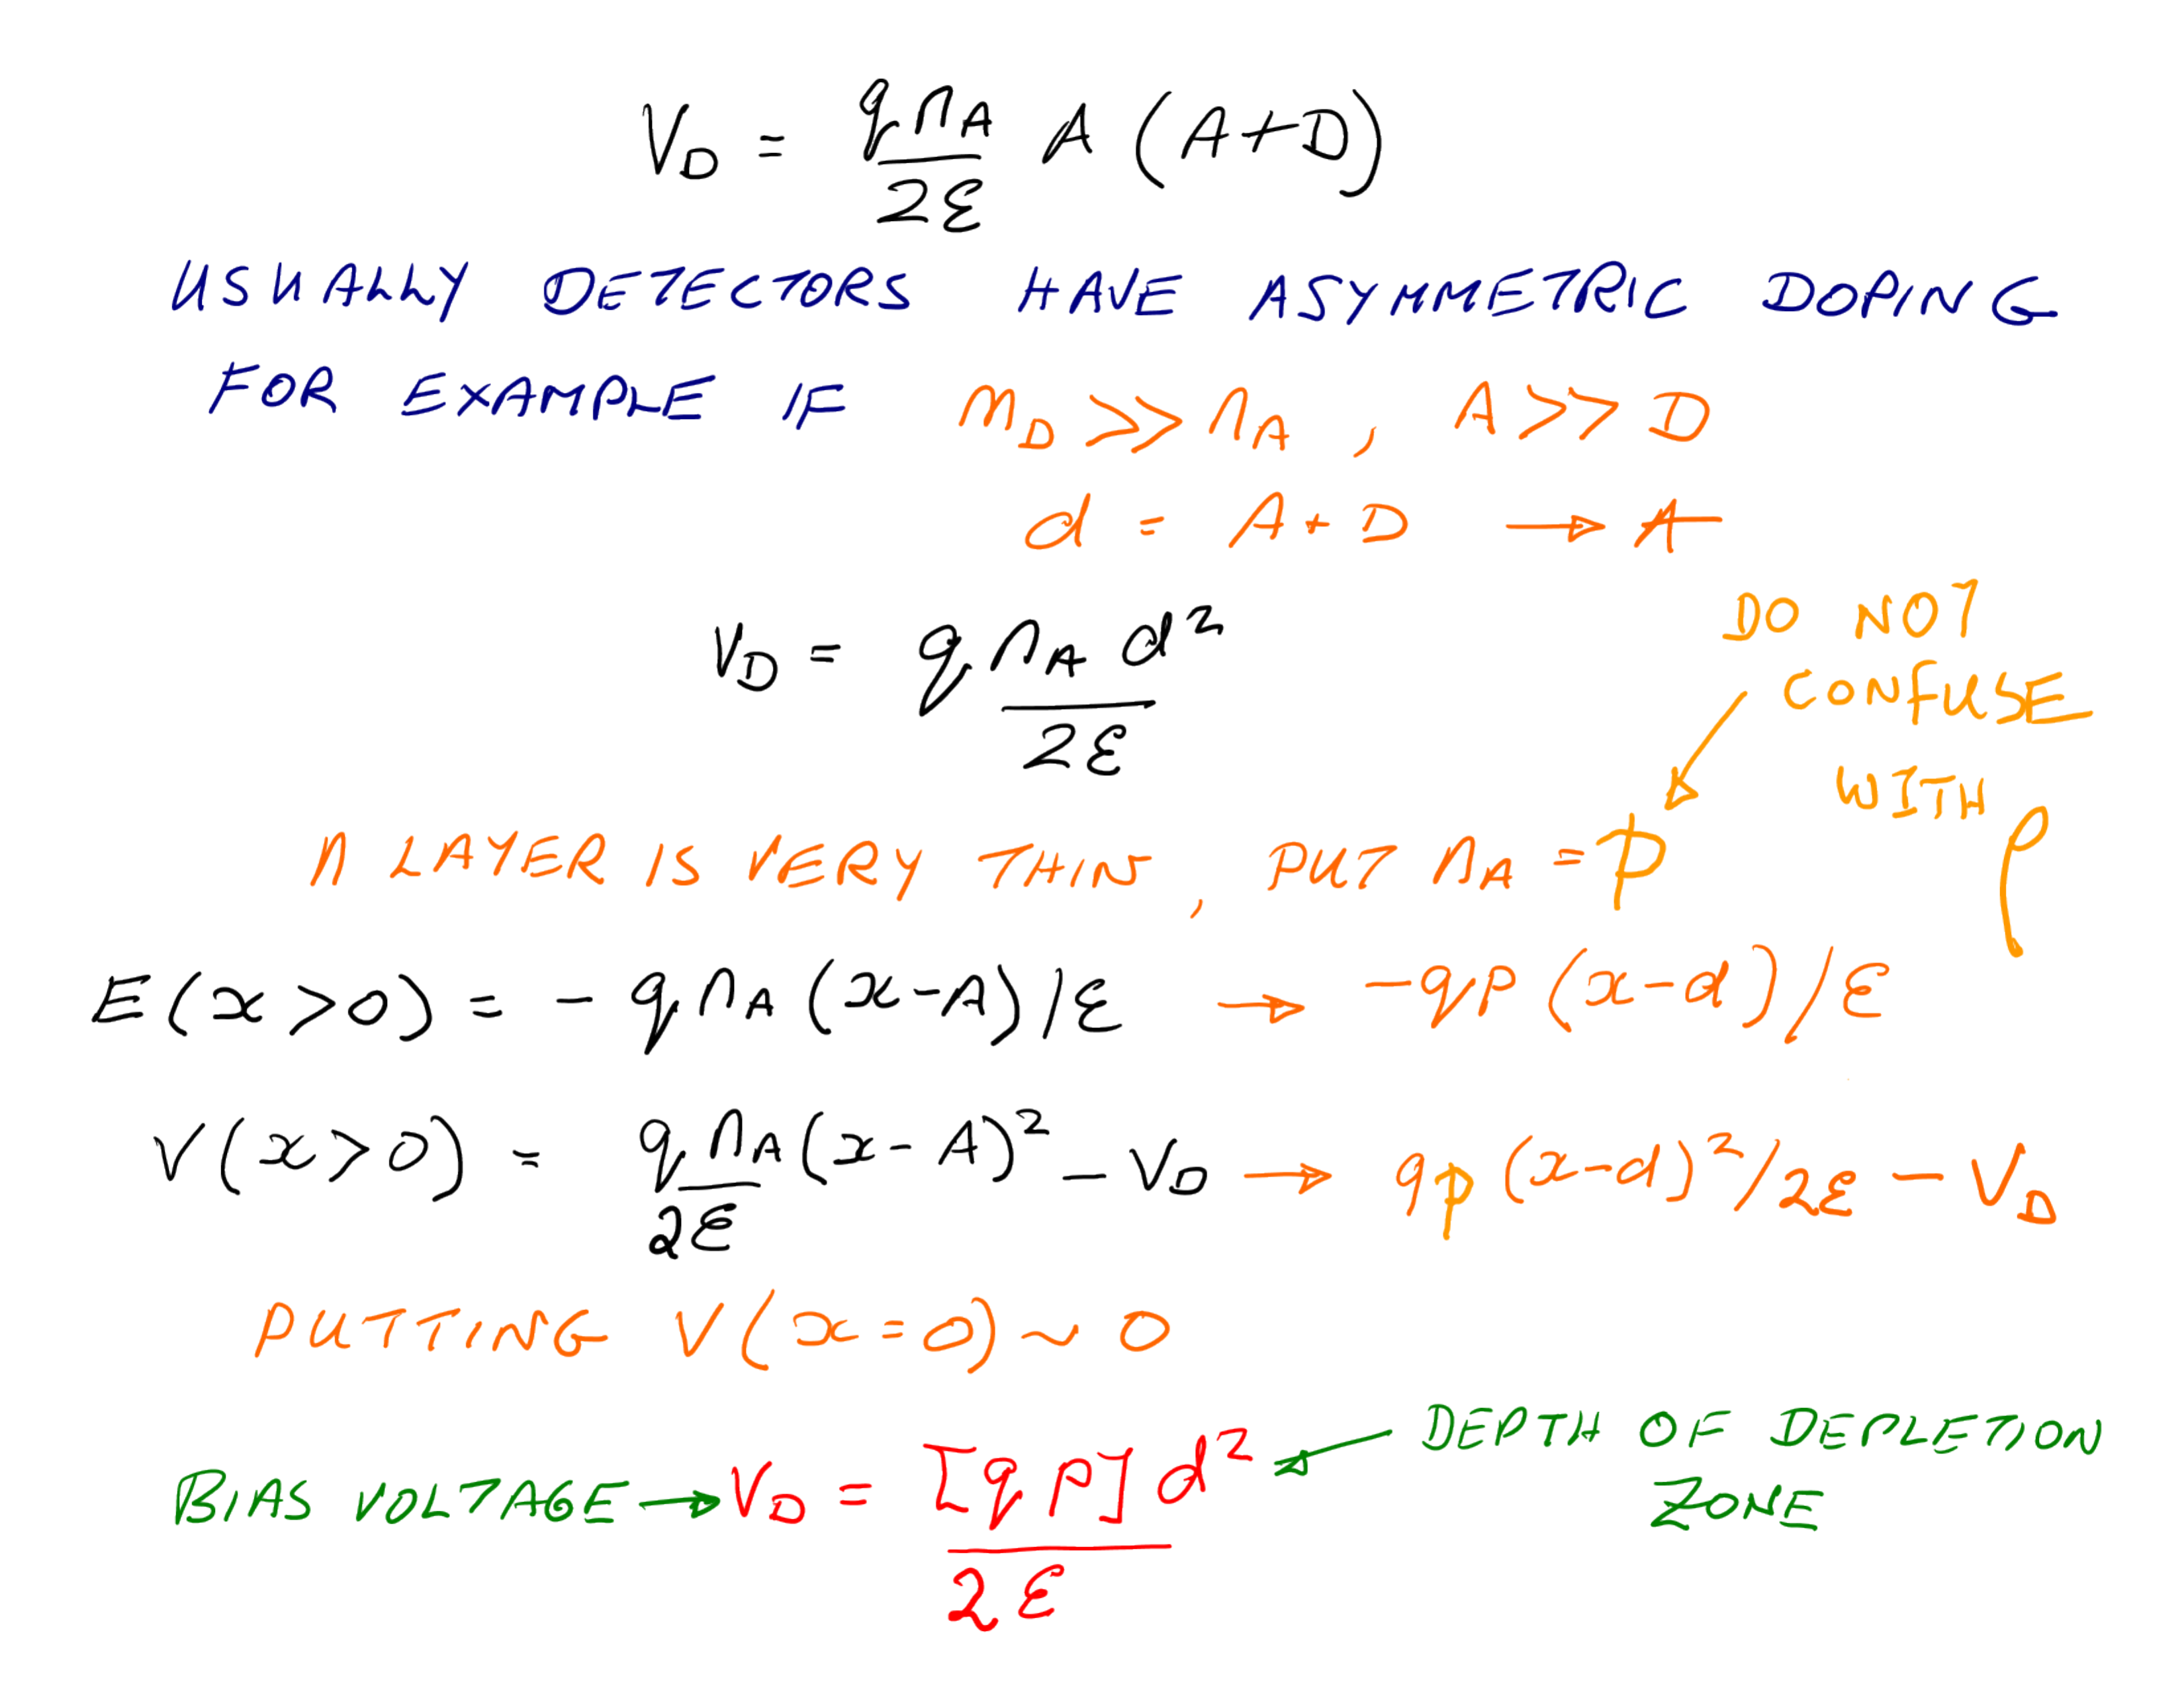 V_D = q n_A / 2ε A (A+D)
USUALLY DETECTORS HAVE ASYMMETRIC DOPING
FOR EXAMPLE IF n_D >> n_A , A >> D
d = A + D → A
V_D = q n_A d² / 2ε
DO NOT
CONFUSE
WITH ρ
n LAYER IS VERY THIN, PUT n_A = p
E(x>0) = - q n_A (x-A)/ε → -qp (x-d)/ε
V(x>0) = q n_A (x-A)² / 2ε - V_D → qp (x-d)²/2ε - V_D
PUTTING V(x=0) ~ 0
BIAS VOLTAGE → V_D = [q p] d² / 2ε ← DEPTH OF DEPLETION
ZONE